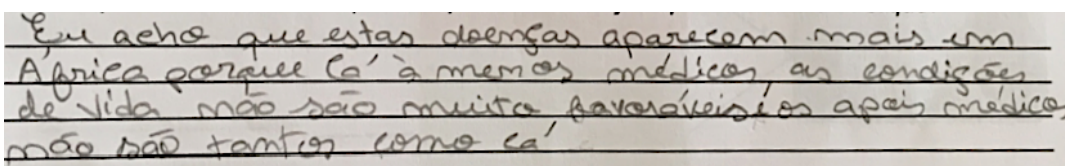 Eu acho que estas doenças aparecem mais em
África porque lá à menos médicos, as condições
de vida não são muito favoráveis e os apois médicos
não são tantos como cá